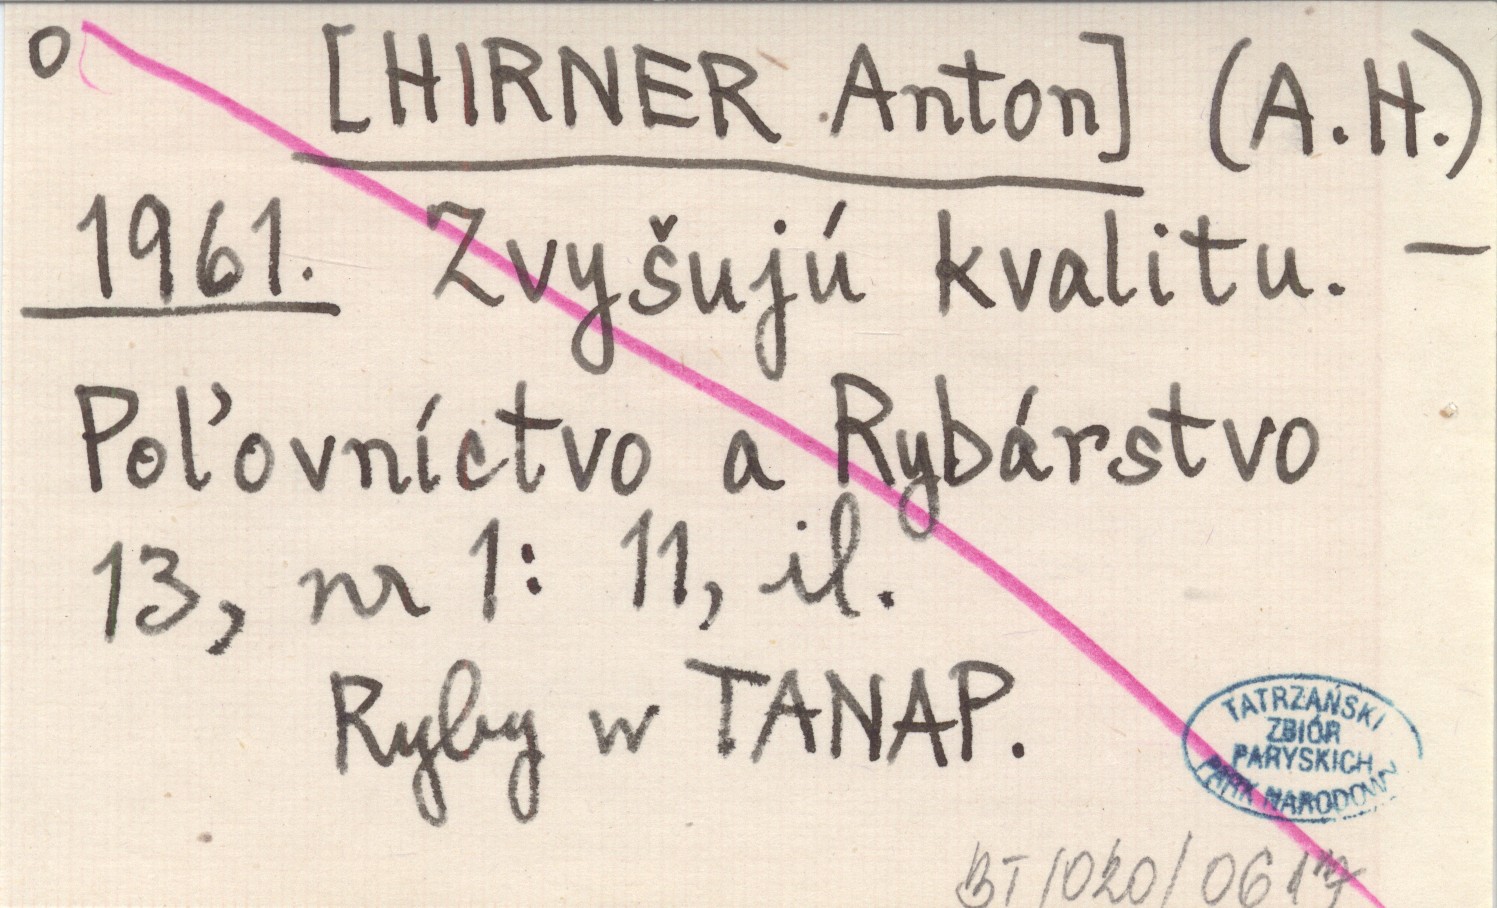 o [HIRNER Anton] (A.H.)
1961. Zvyšujú kvalitu. —
Poľovníctvo a Rybárstvo
13, nr 1: 11, il.
Ryby w TANAP.
TATRZAŃSKI
ZBIÓR
PARYSKICH
PARK NARODOWY
BT/020/0617